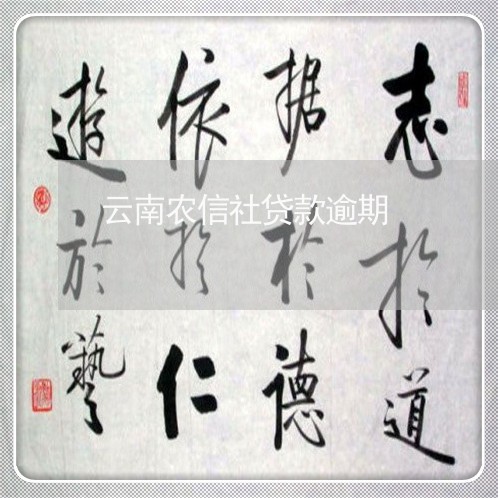 志於道
据於德
依於仁
遊於藝
云南农信社贷款逾期